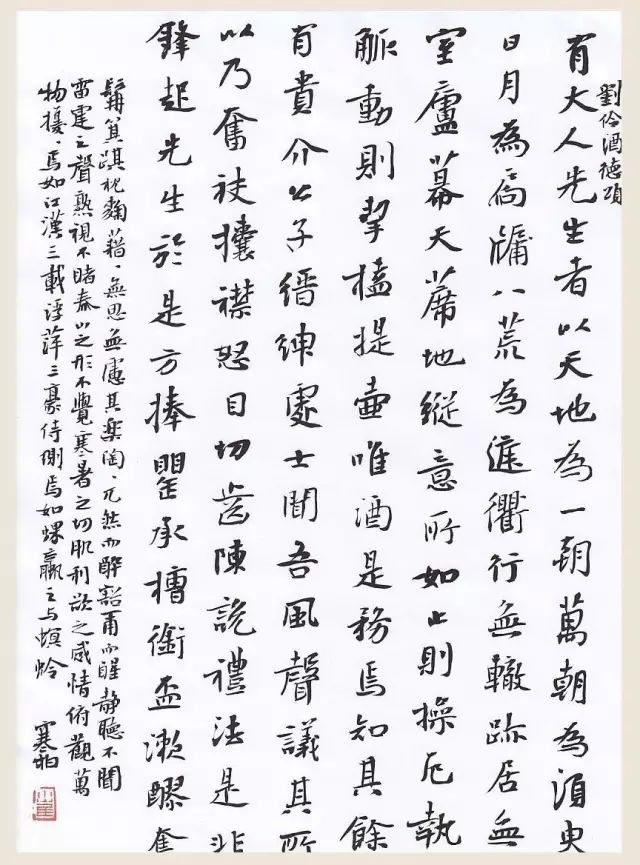 劉伶酒德頌
有大人先生者以天地為一朝萬朝為須臾
日月為扃牖八荒為庭衢行無轍跡居無
室廬幕天蓆地縱意所如止則操卮執
觚動則挈榼提壺唯酒是務焉知其餘
有貴介公子縉紳處士聞吾風聲議其所
以乃奮袂攘襟怒目切齒陳說禮法是非
鋒起先生於是方捧甖承槽銜盃漱醪奮
髯箕踞枕麴藉、無思無慮其樂陶、兀然而醉豁爾而醒靜聽不聞
雷霆之聲熟視不睹泰山之形不覺寒暑之切肌利欲之感情俯觀萬
物擾、焉如江漢三載浮萍三豪侍側焉如蜾蠃之與螟蛉
寒柏